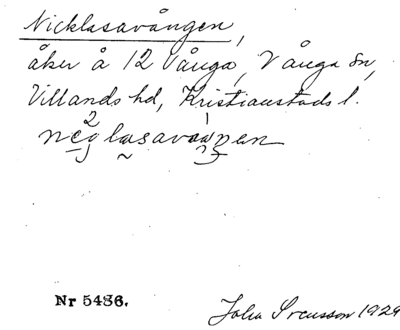 Nicklasavången,
åker å 12 Vånga, Vånga sn,
Villands hd, Kristianstads l.
Nr 5486.
John Svensson 1929